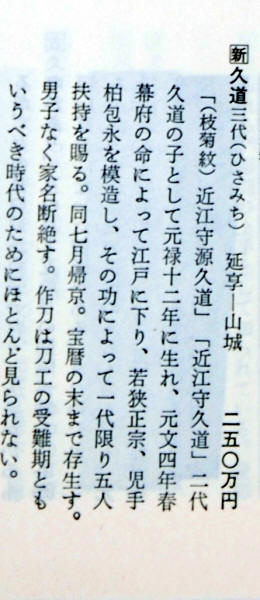 新 久道三代(ひさみち) 延享―山城 二五〇万円
「(枝菊紋)近江守源久道」「近江守久道」二代
久道の子として元禄十二年に生れ、元文四年春
幕府の命によって江戸に下り、若狭正宗、児手
柏包永を模造し、その功によって一代限り五人
扶持を賜る。同七月帰京。宝暦の末まで存生す。
男子なく家名断絶す。作刀は刀工の受難期とも
いうべき時代のためにほとんど見られない。